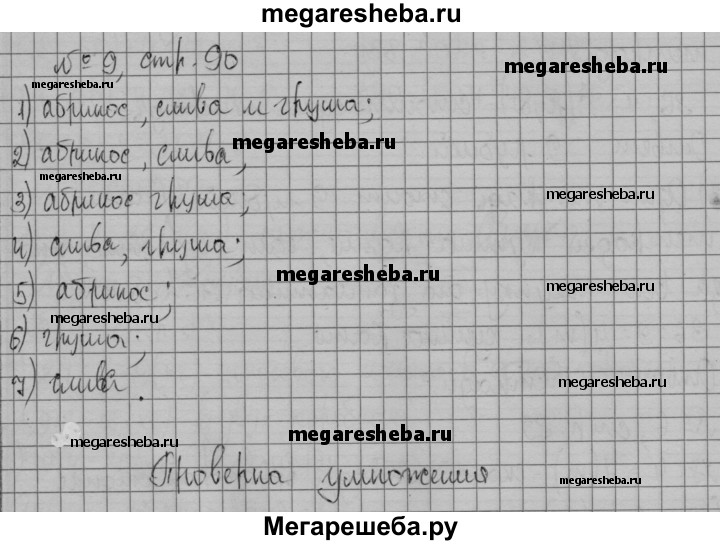 megaresheba.ru
№ 9, стр. 90
megaresheba.ru
megaresheba.ru
1) абрикос, слива и груша;
megaresheba.ru
2) абрикос, слива;
megaresheba.ru
3) абрикос груша;
megaresheba.ru
4) слива, груша;
megaresheba.ru
5) абрикос;
megaresheba.ru
megaresheba.ru
6) груша;
7) слива.
megaresheba.ru
megaresheba.ru
megaresheba.ru
Проверка умножения
megaresheba.ru
Мегарешеба.ру